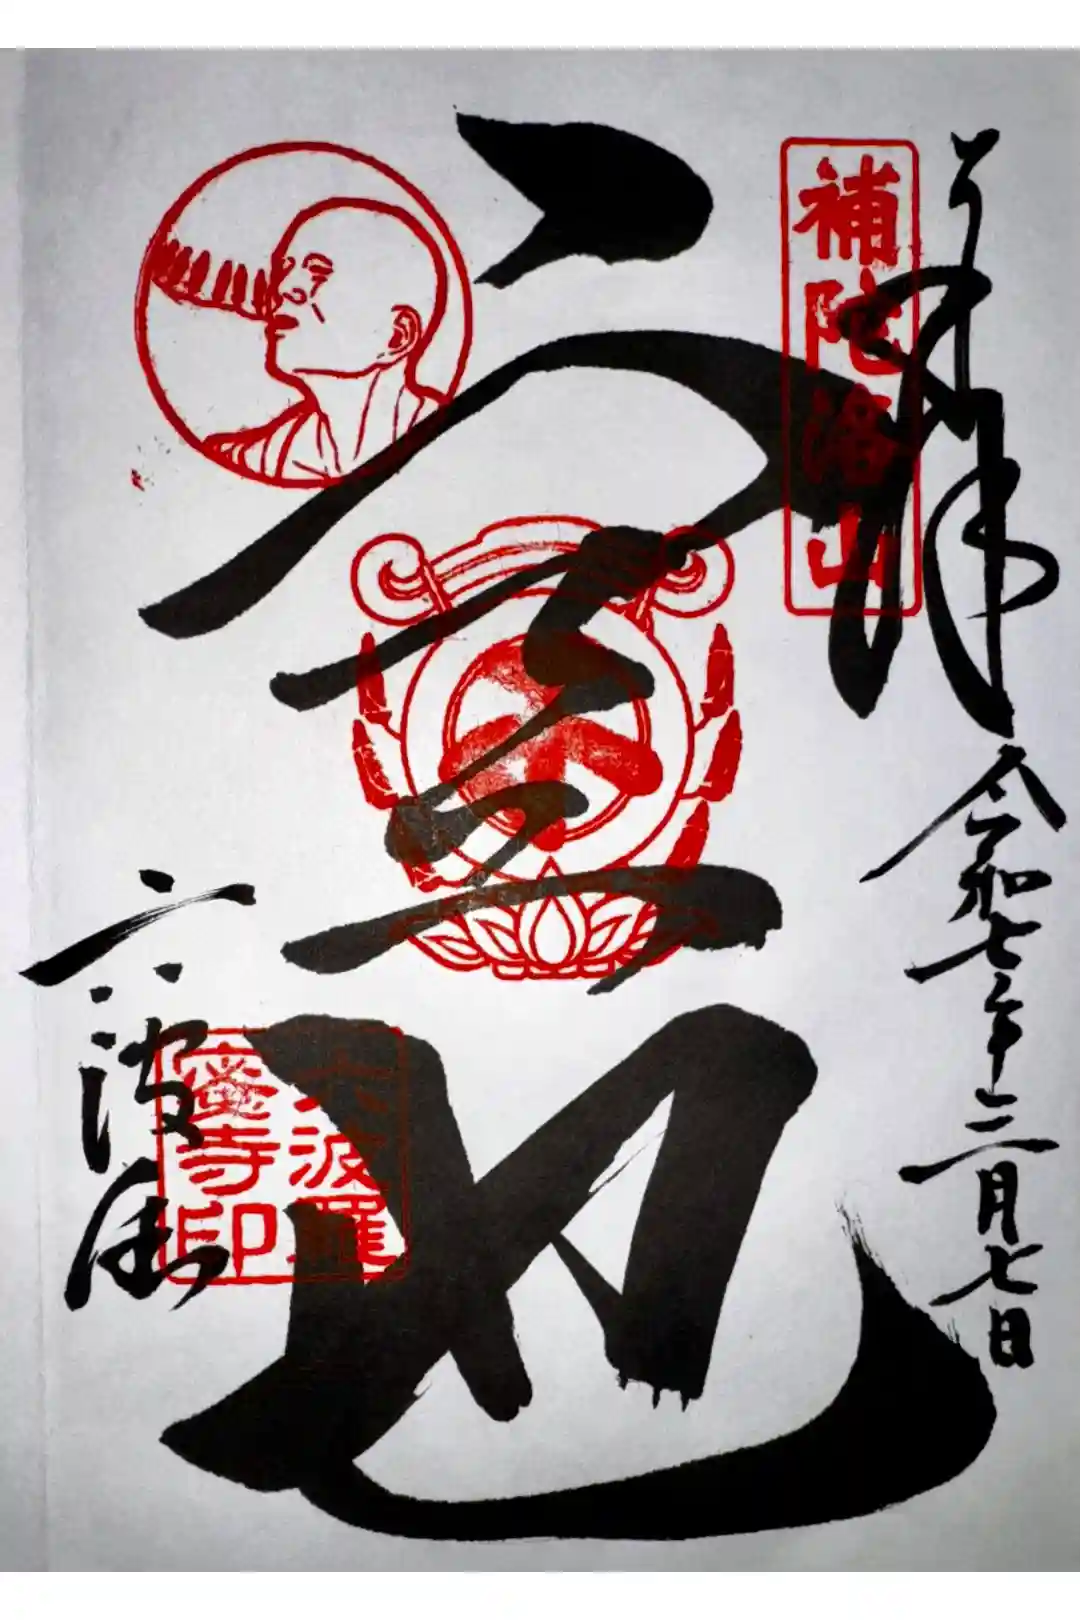 奉拝
令和七年三月七日
補陀洛山
空也
六波
六波羅
蜜寺印